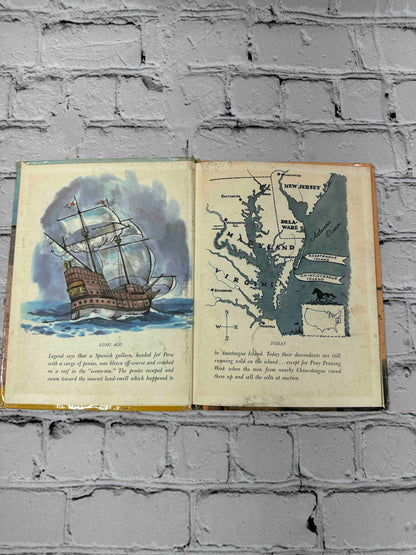 LONG AGO
Legend says that a Spanish galleon, headed for Peru
with a cargo of ponies, was blown off-course and crashed
on a reef in the "ocean-sea." The ponies escaped and
swam toward the nearest land—small which happened to
NEW JERSEY
BALTIMORE
DELA-
WARE
Atlantic
Ocean
MARYLAND
VIRGINIA
N
W E
S
TODAY
be Assateague Island. Today their descendants are still
running wild on the island . . . except for Pony Penning
Week when the men from nearby Chincoteague round
them up and sell the colts at auction.